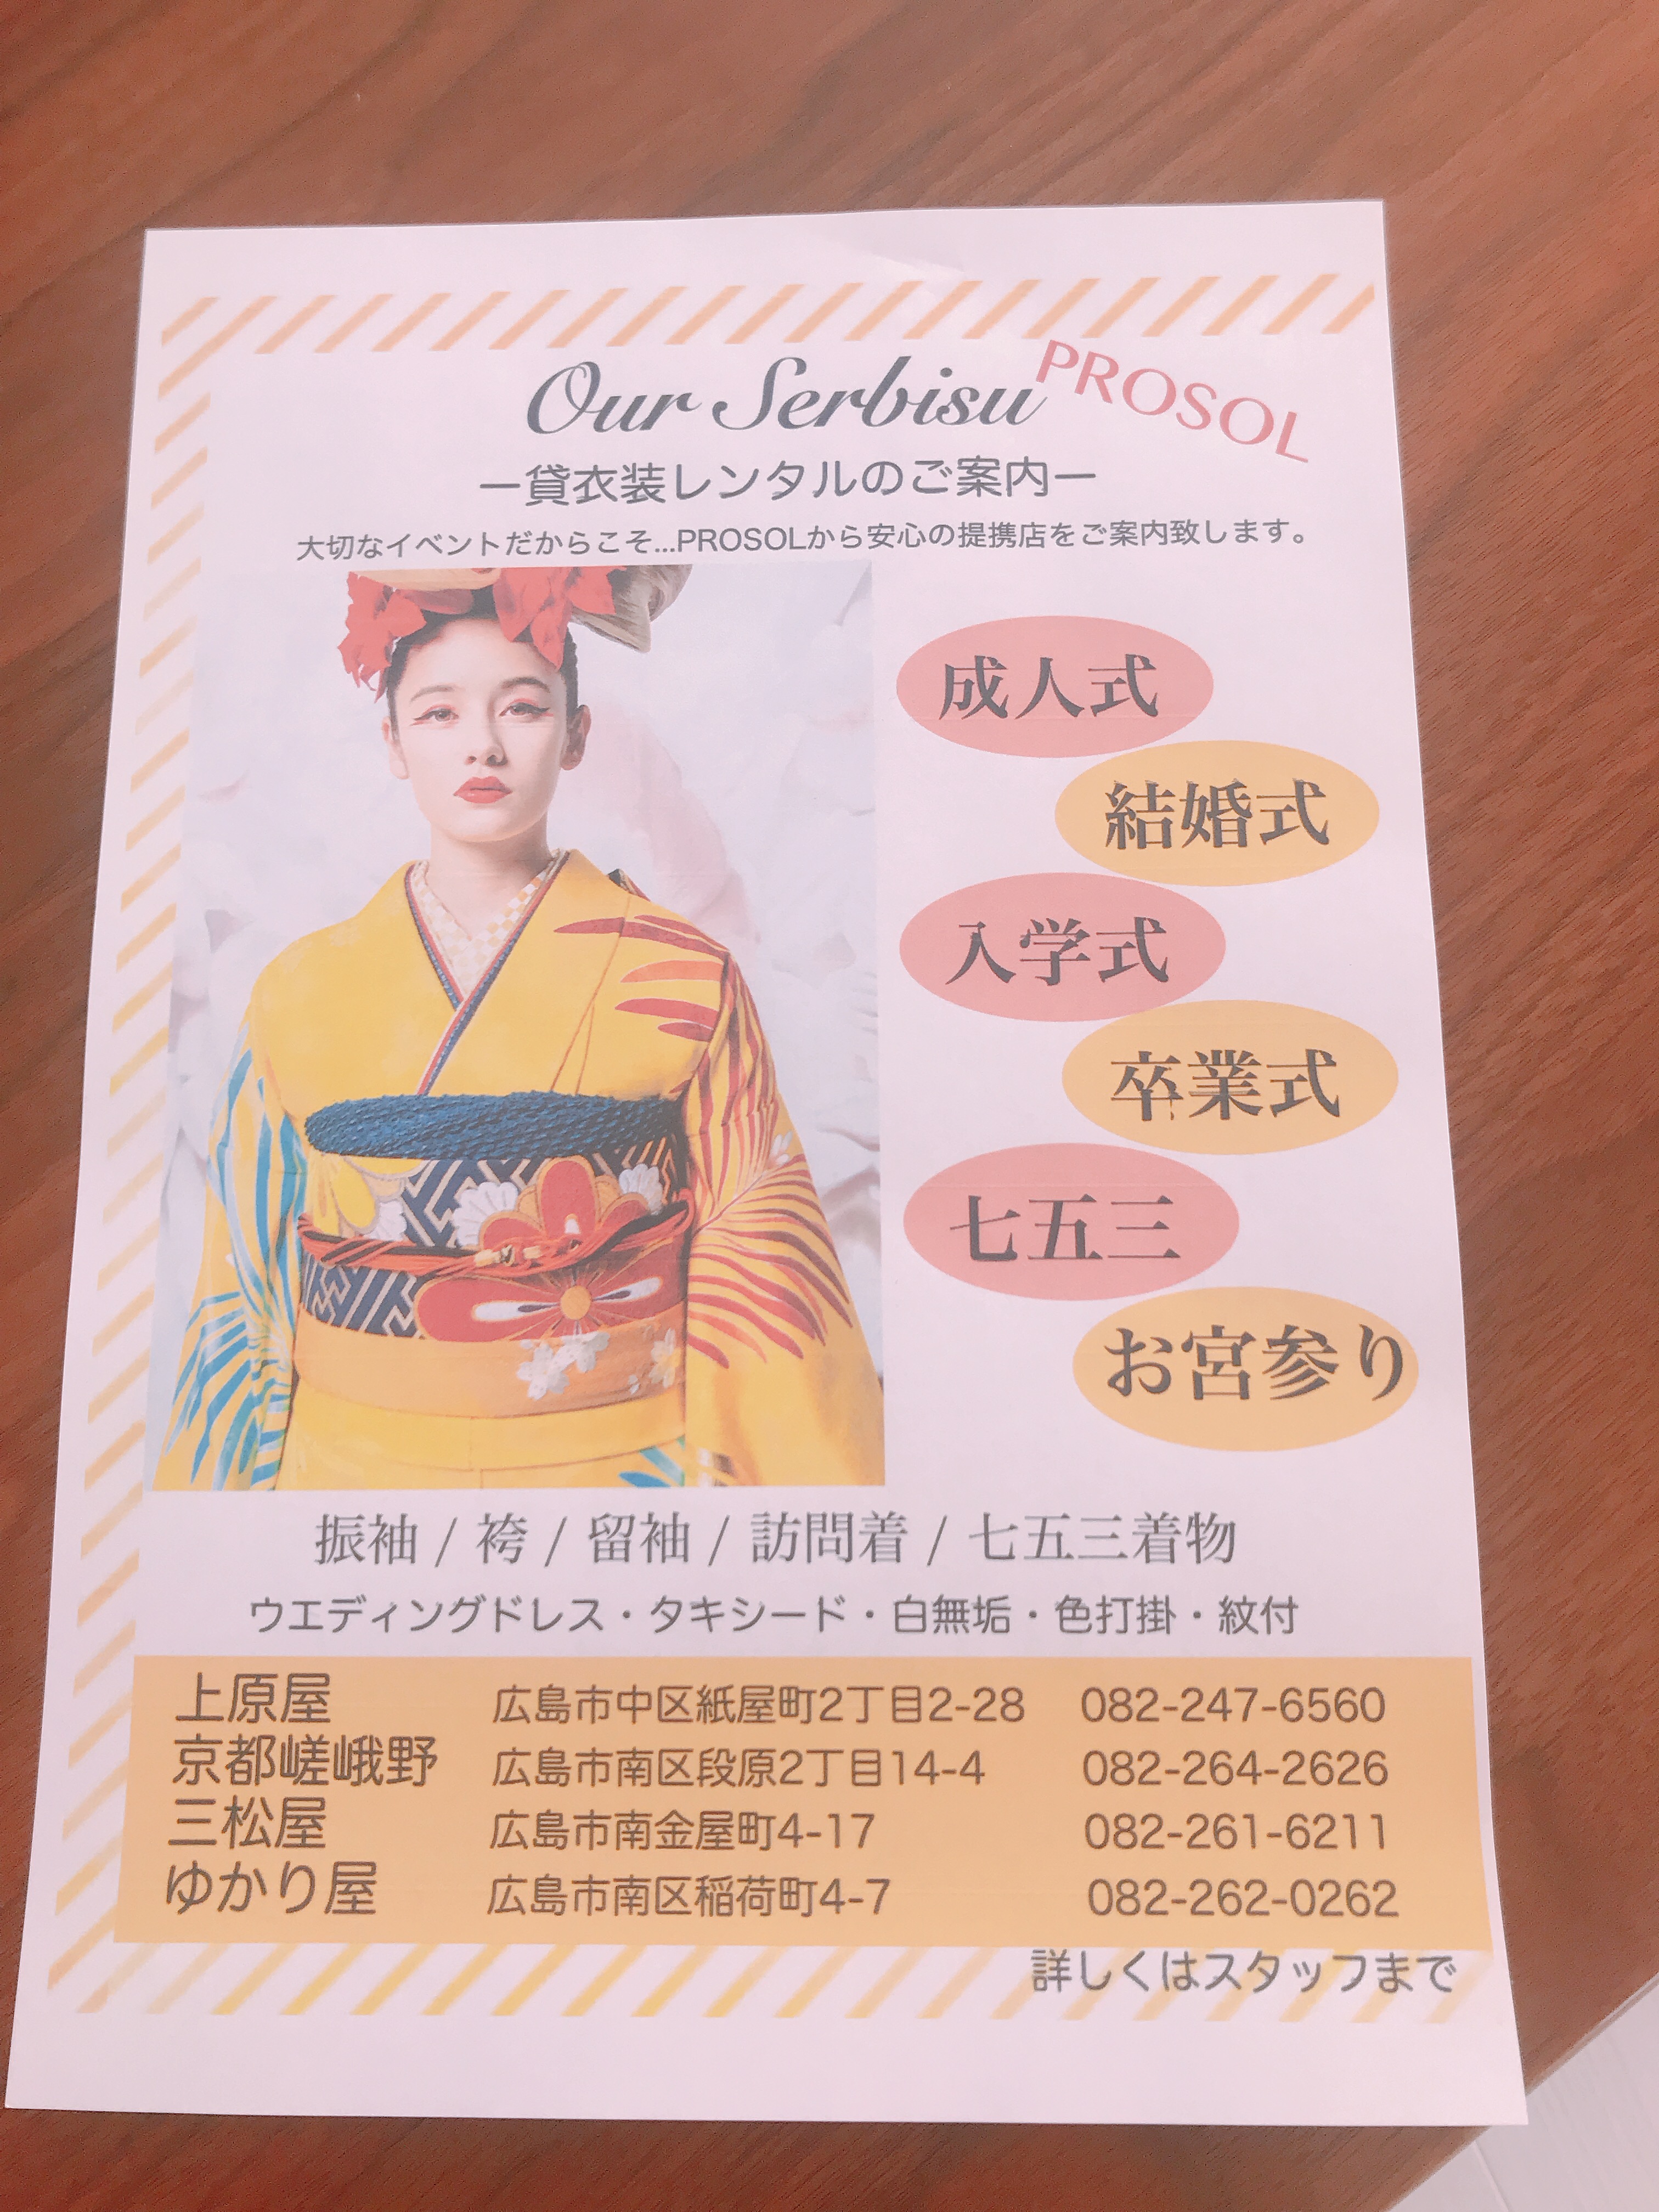 Our Serbisu PROSOL
ー貸衣装レンタルのご案内ー
大切なイベントだからこそ...PROSOLから安心の提携店をご案内致します。
成人式
結婚式
入学式
卒業式
七五三
お宮参り
振袖 / 袴 / 留袖 / 訪問着 / 七五三着物
ウエディングドレス・タキシード・白無垢・色打掛・紋付
上原屋 広島市中区紙屋町2丁目2-28 082-247-6560
京都嵯峨野 広島市南区段原2丁目14-4 082-264-2626
三松屋 広島市南金屋町4-17 082-261-6211
ゆかり屋 広島市南区稲荷町4-7 082-262-0262
詳しくはスタッフまで